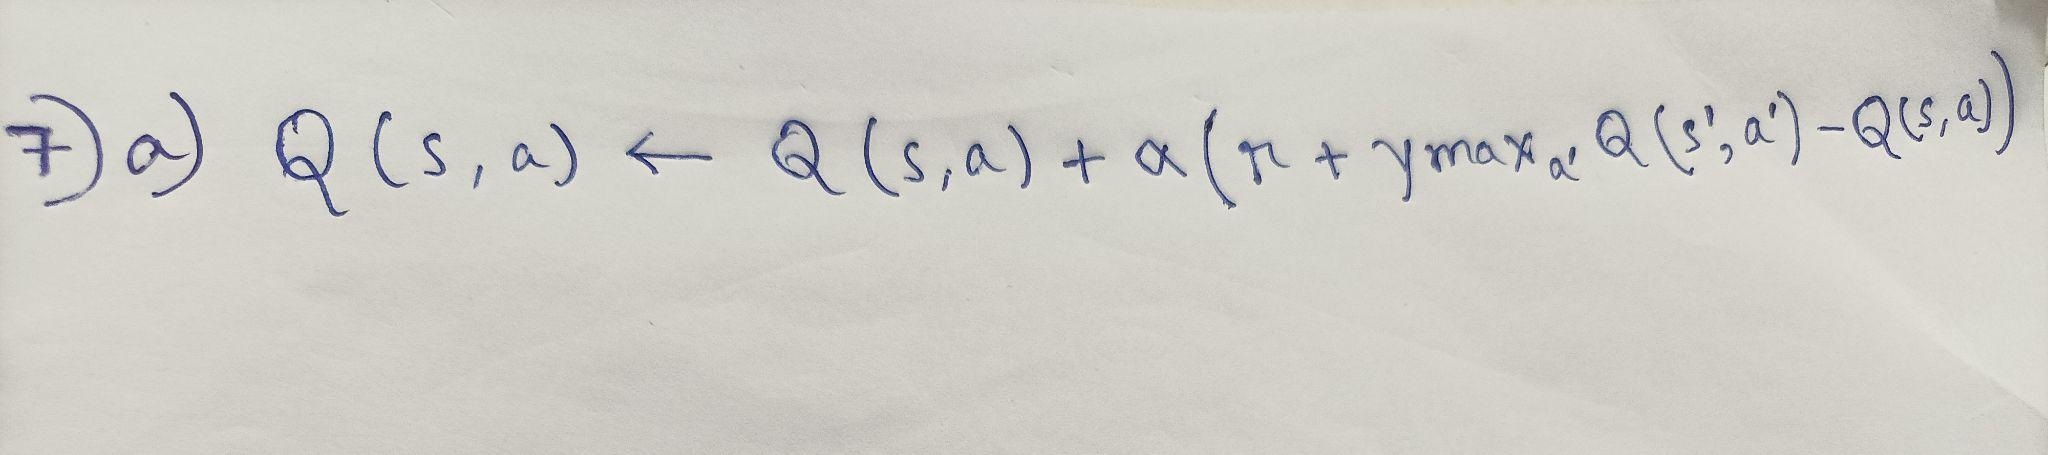 7) a) Q(s, a) ← Q(s,a) + α(r + γmaxₐ' Q(s', a') - Q(s,a))